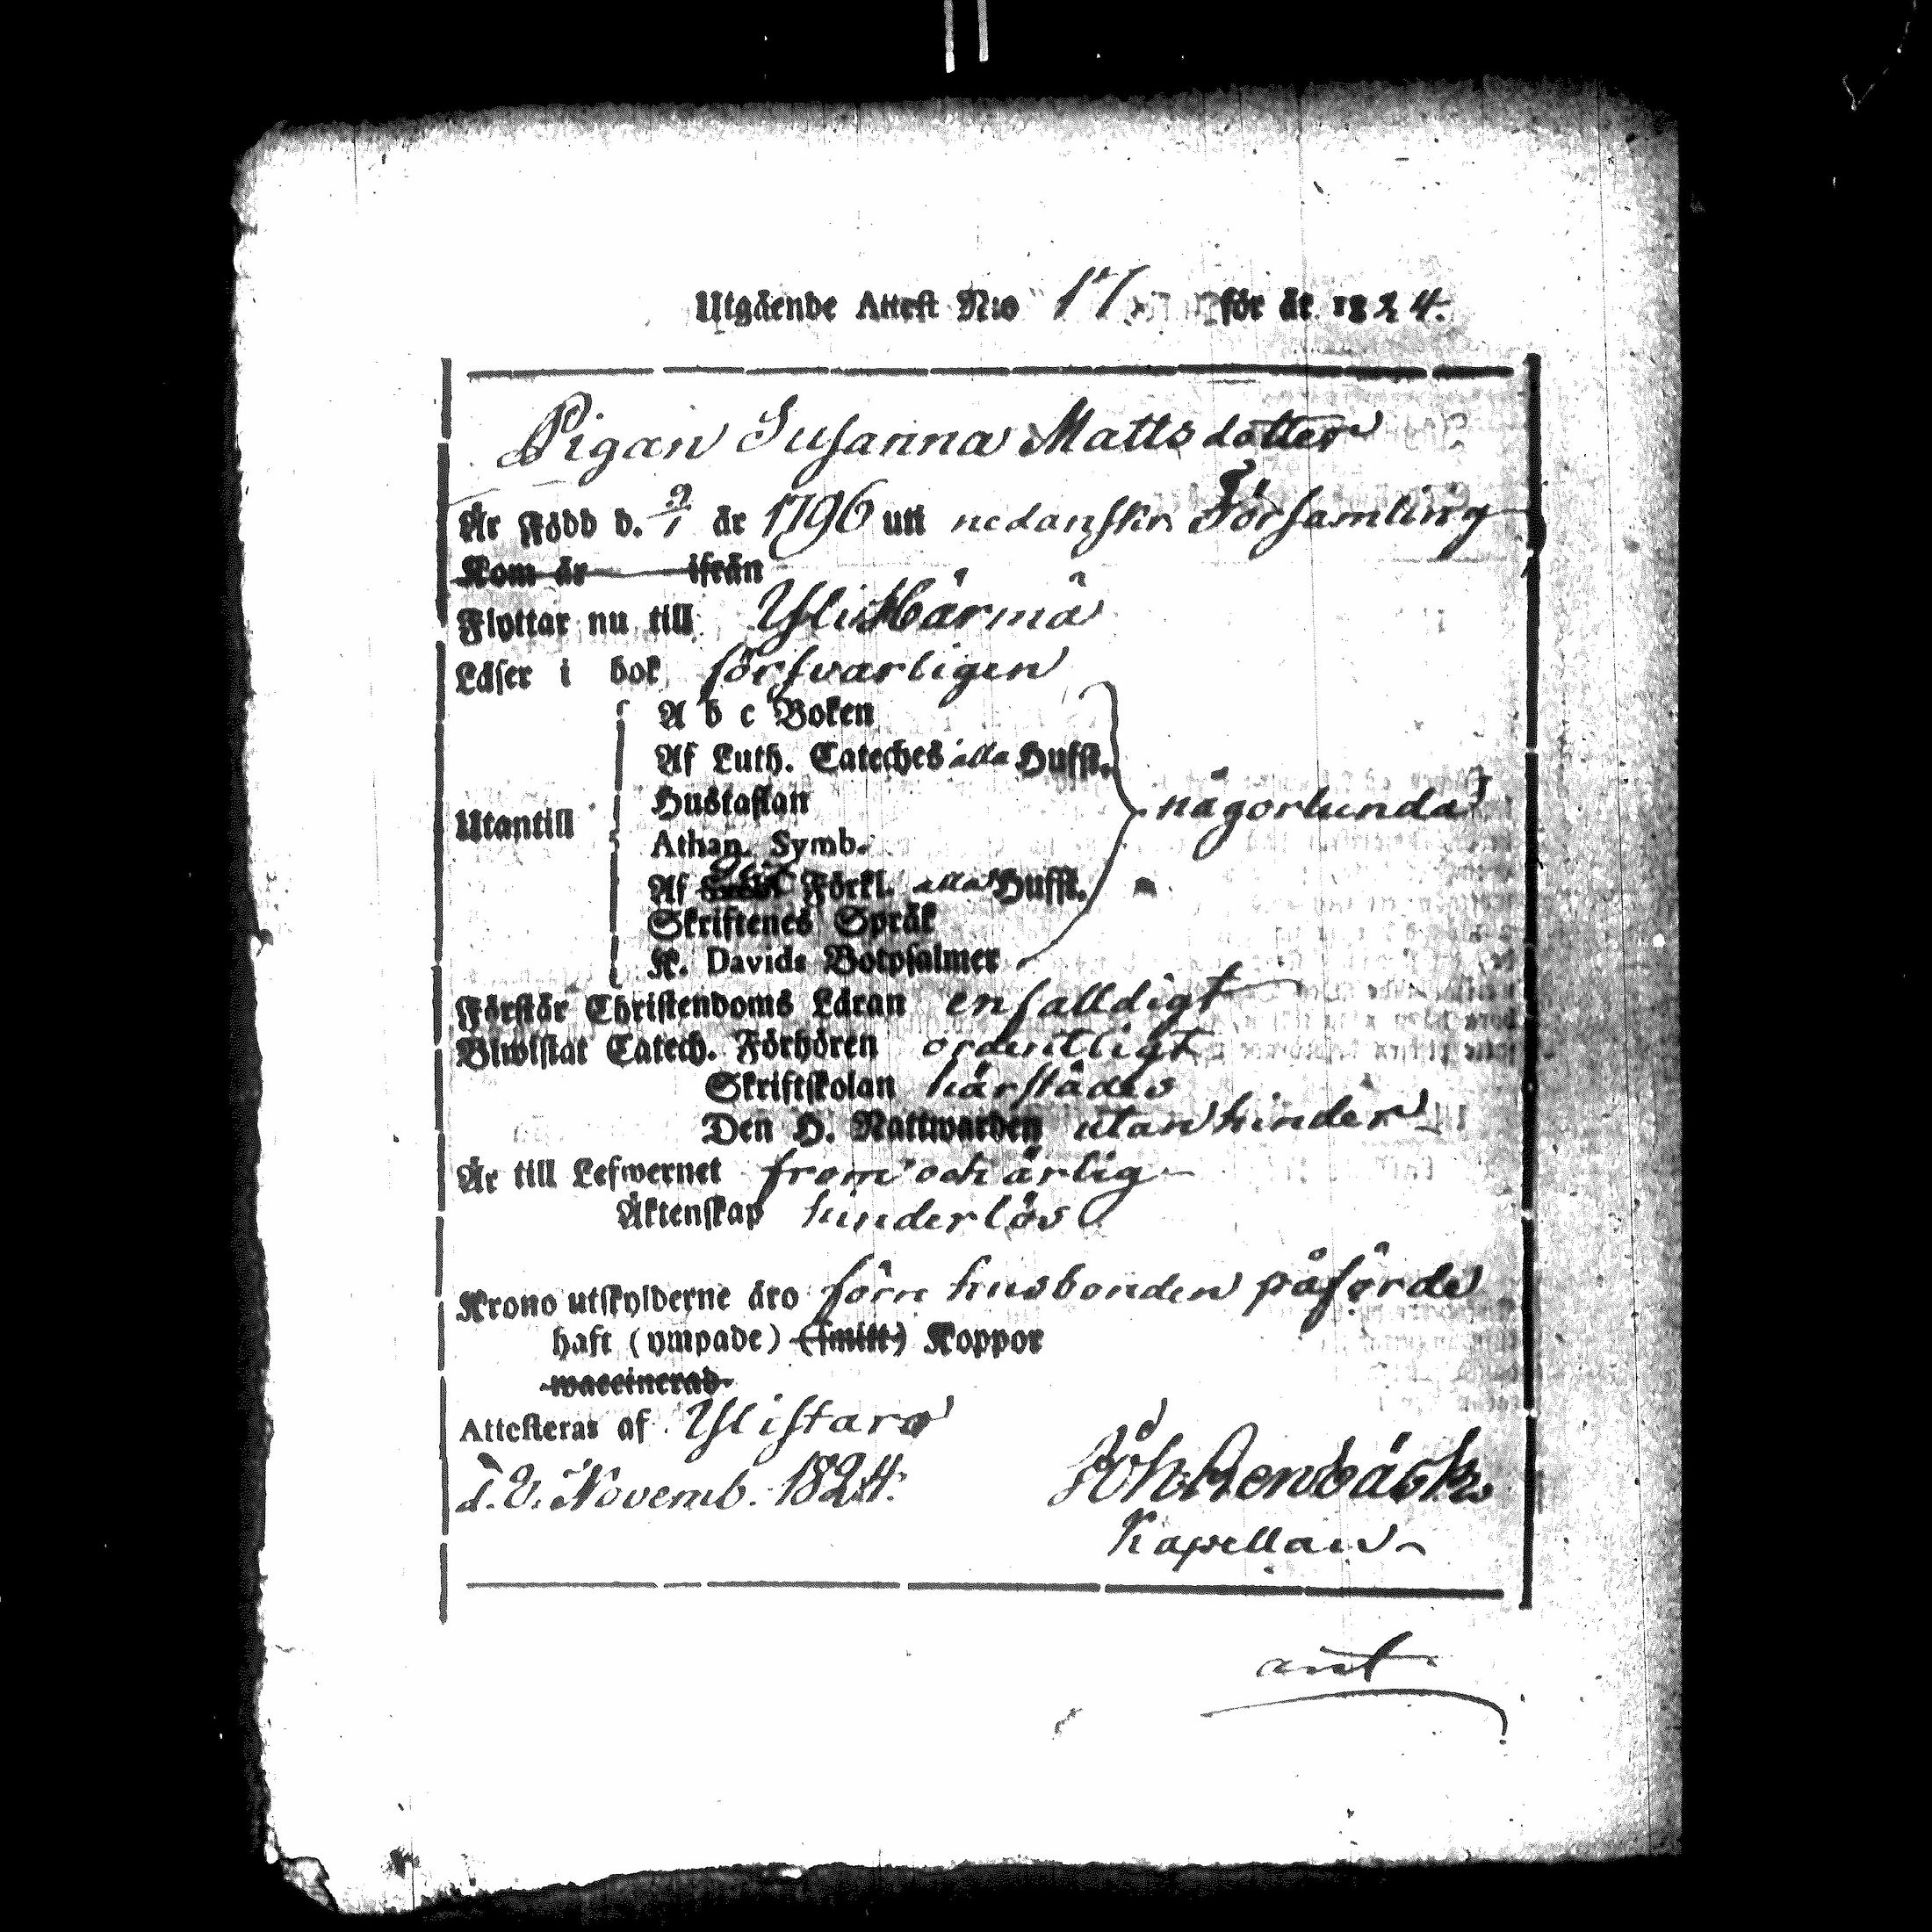 Utgående Attest N:o 17 för år 1824.
Pigan Susanna Mattsdotter
Är Född d. 2/1 år 1796 uti nedanskr. Församling
Kom år ifrån
Flyttar nu till YliHärmä
Läser i bok försvarligen
A b c Boken
Af Luth. Cateches alla Hufst.
Hustaflan
Utantill
någorlunda
Athan. Symb.
Af Förkl. alla Hufst.
Skriftenes Språk
K. Davids Botpsalmer
Förstår Christendoms Läran enfalldigt
Biwistat Catech. Förhören ordentligt
Skriftskolan härstädes
Den H. Nattwarden utan hinder
Är till Lefwernet from och ärlig
Äktenskap hinderlös
Krono utskylderne äro förn husbonden påförde
haft (ympade) (smitt) Koppor
waccinerad
Attesteras af Ylistaro
d. 2. Novemb. 1824.
Joh. Stenbäck
Kapellan
ant.